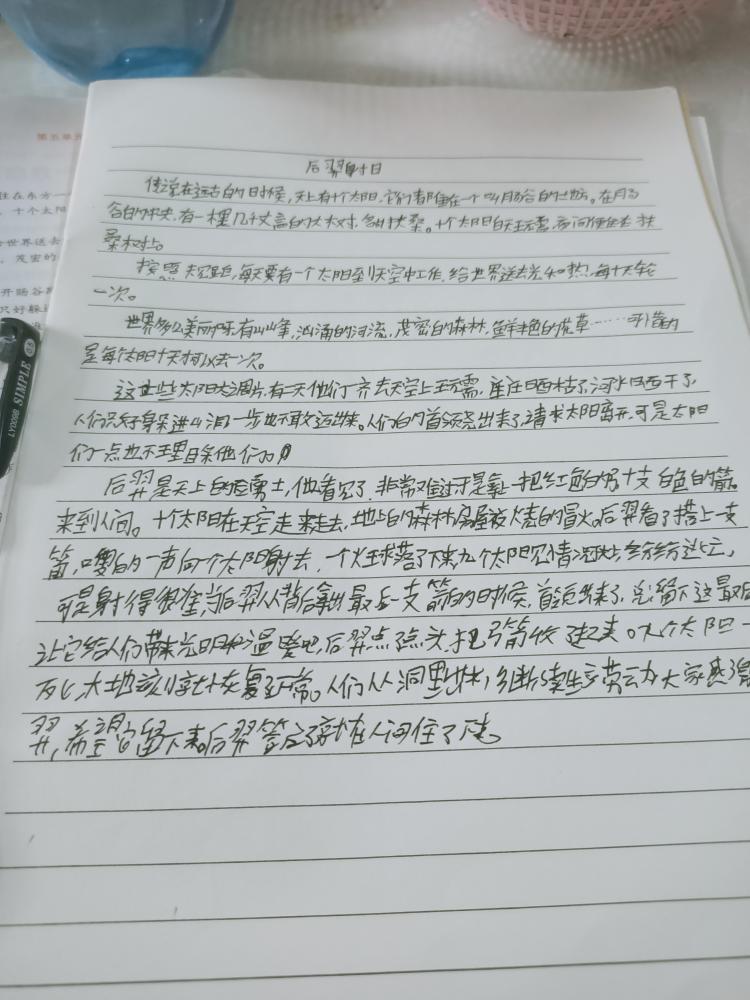 第五单元
住在东方一
,十个太阳
世界送去
,茂密的
开肠谷
只好躲
LY009B SIMPLE
后羿射日
传说在远古的时候,天上有十个太阳,它们都住在一个叫旸谷的地方。在旸
谷的中央,有一棵几千丈高的大木对,名叫扶桑。十个太阳白天玩耍,夜间便住在扶
桑树上。
按照天规,每天要有一个太阳到天空中工作,给世界送去光和热,每十天轮
一次。
世界多么美丽呀,有山峰,汹涌的河流,茂密的森林,鲜艳的花草……可惜的
是每个太阳十天才可以去一次。
这些太阳太调片,有一天他们一齐去天空上玩耍,庄庄晒枯了,河水晒干了,
人们只好身躲进山洞一步也不敢迈出来。人们的首领尧出来了,请求太阳离开,可是太阳
们一点也不理睬他们的
后羿是天上的勇士,他看见了,非常难过于是拿一把红色的弓十支白色的箭
来到人间。十个太阳在天空走来走去,地上的森林房屋被火烤的冒火。后羿看了搭上一支
箭,嗖的一声向个太阳射去,一个火球落了下来,九个太阳见情况纷纷逃亡,
可是射得很准,当后羿从背后拿出最后一支箭的时候,首领出来了,忘留下这最后
让它给人们带来光明和温暖吧,后羿点点头,把弓箭收了起来。九个太阳一
死,大地该刻就恢复了正常。人们从洞里出来,继断续生产劳动,大家感激
羿,希望留下来。后羿答应了就在人间住了下来。